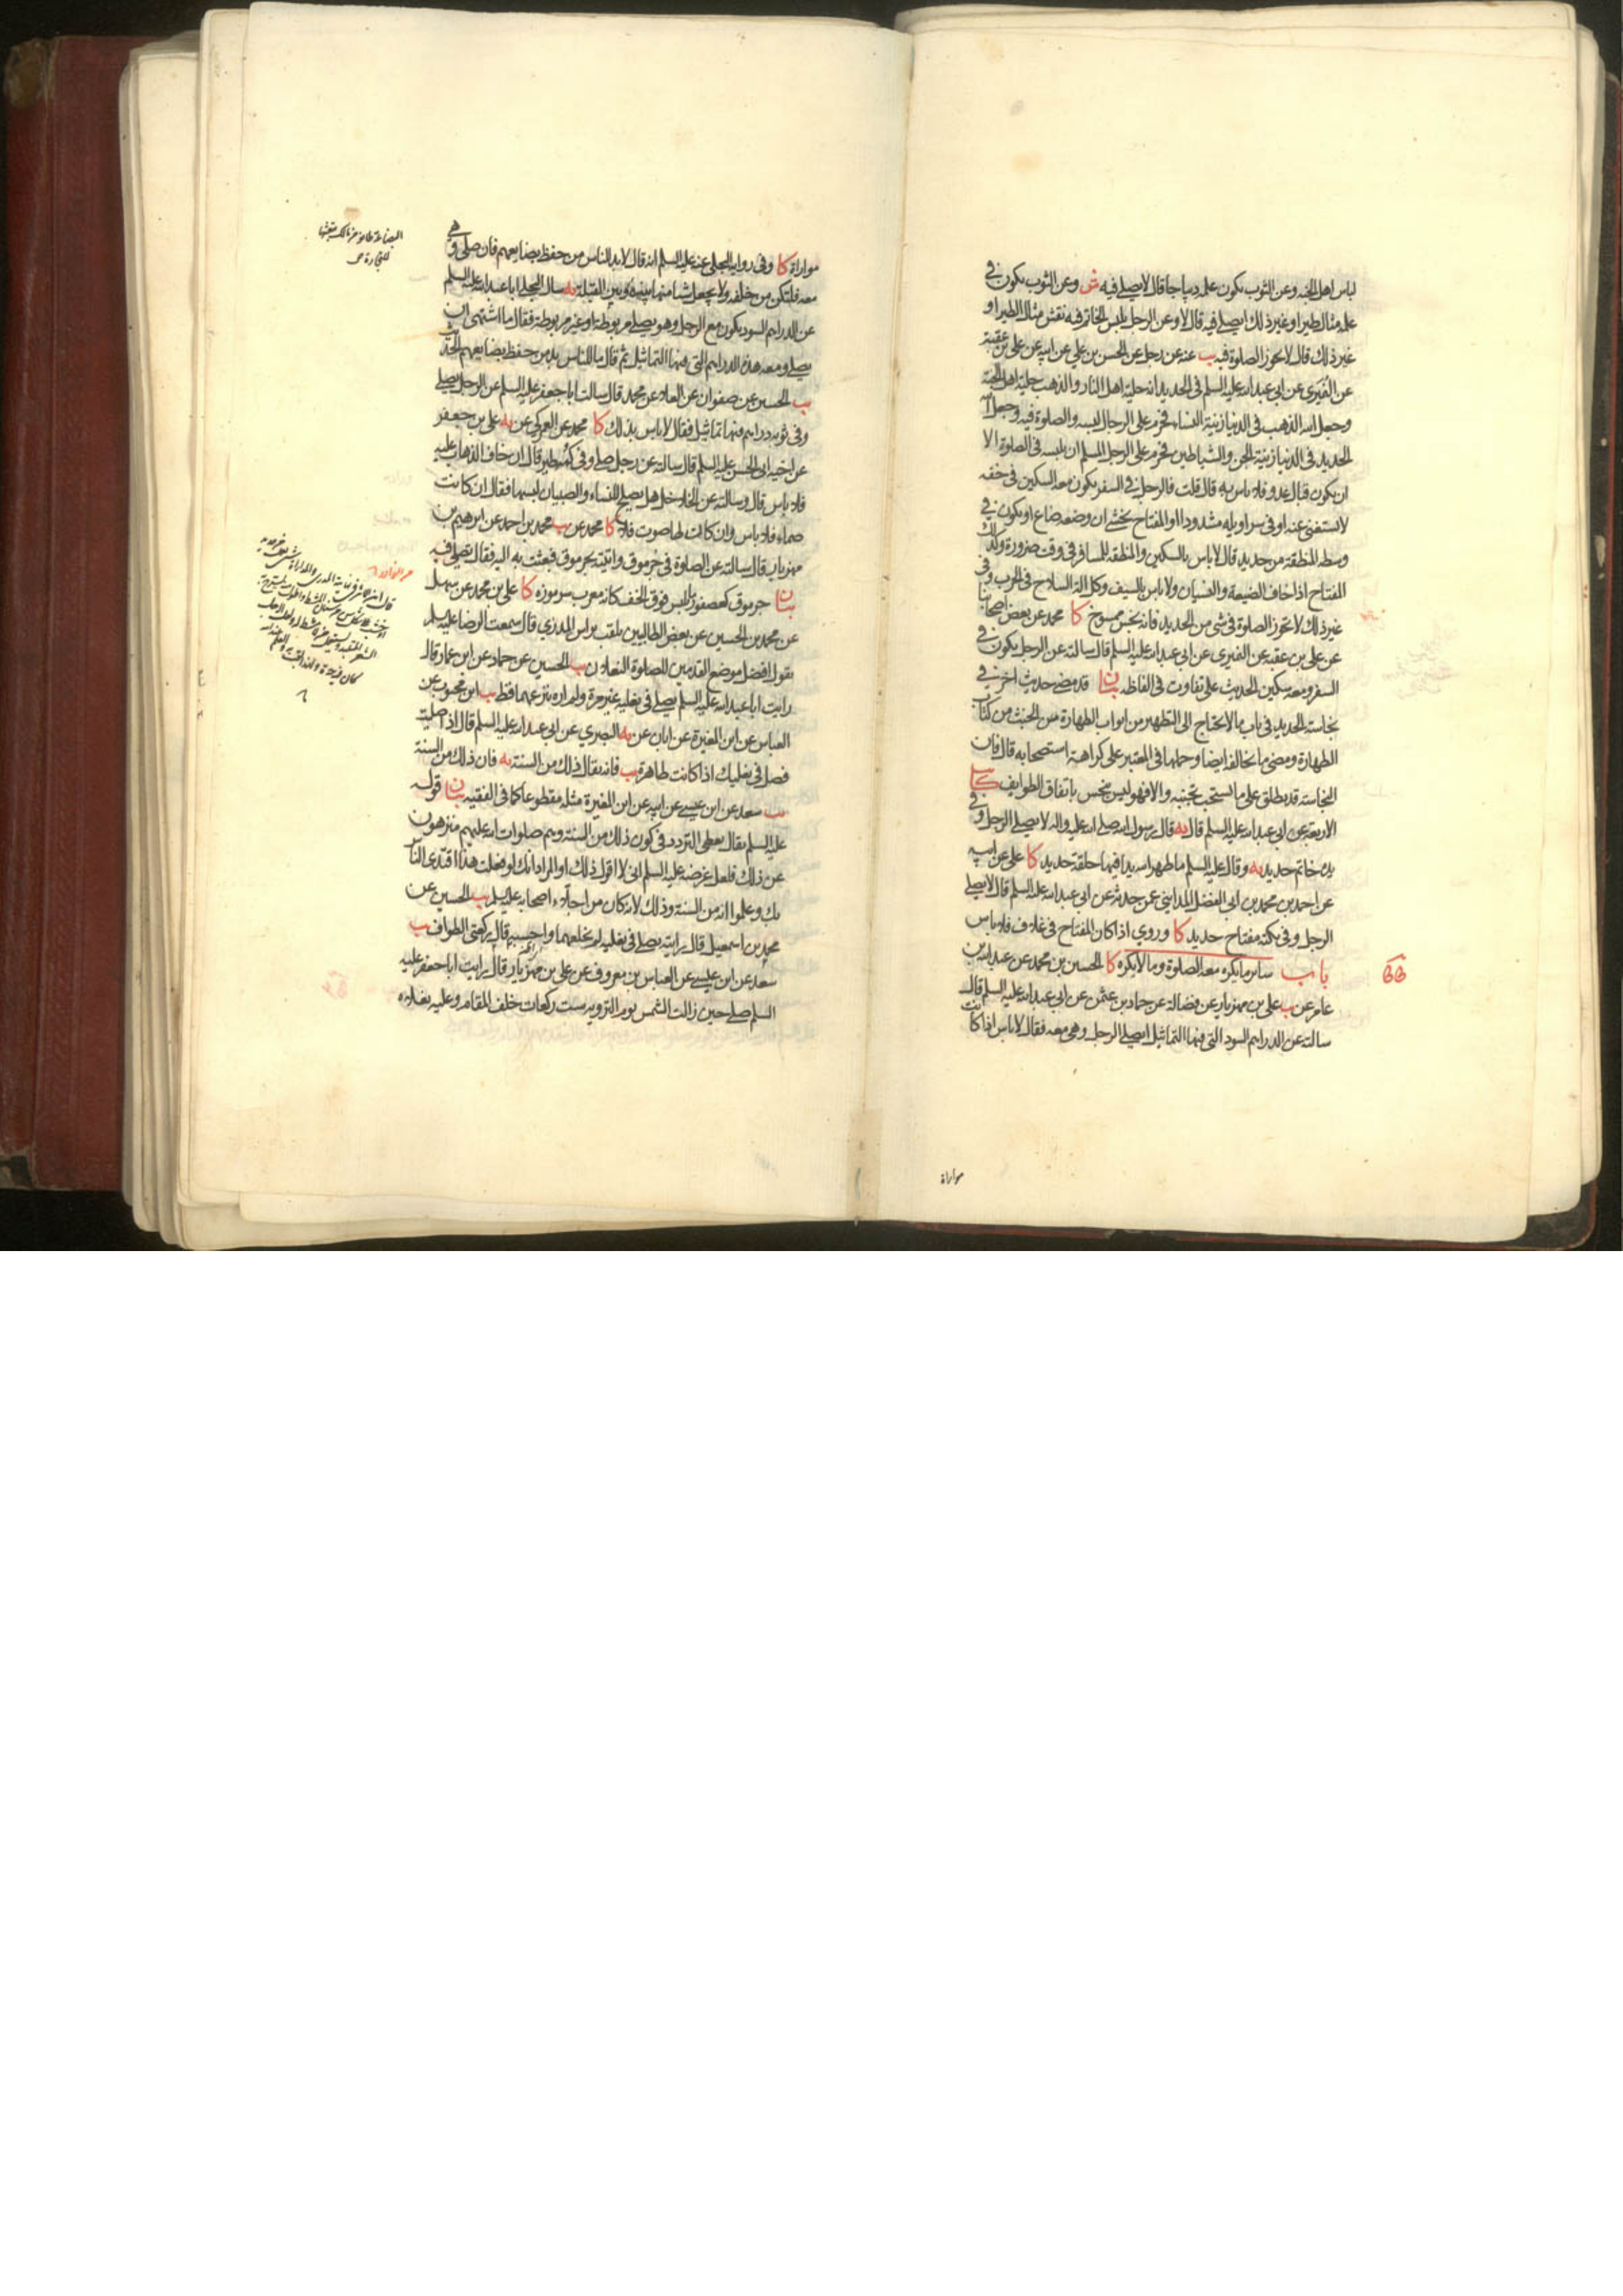 لباس اهل الجنه وعن الثوب يكون علمه ديباجا قال لا يصلے فيه ش وعن الثوب يكون في
علمه مثال طير او غير ذلك ايصلے فيه قال لا وعن الرجل يلبس الخاتم فيه نقش مثال الطير او
غير ذلك قال لا تجوز الصلوة فيه يب عنه عن رجل عن الحسن بن علي عن ابيه عن علي بن عقبة
عن النميري عن ابي عبد الله عليه السلم في الحديد انه حلية اهل النار والذهب حلية اهل الجنة
وجعل الله الذهب في الدنيا زينة النساء فحرم على الرجال لبسه والصلوة فيه وجعل الله
الحديد في الدنيا زينة الجن والشياطين فحرم على الرجل المسلم ان يلبسه في الصلوة الا
ان يكون قبال عدو فلا باس به قال قلت فالرجل في السفر يكون معه السكين في خفه
لا يستغنى عنه او في سراويله مشدودا او المفتاح يخشى ان وضعه ضاع او يكون في
وسطه المنطقة من حديد قال لا باس بالسكين والمنطقة للمسافر في وقت ضرورة وكذلك
المفتاح اذا خاف الضيعة والنسيان ولا باس بالسيف وكل الة السلاح في الحرب وفي
غير ذلك لا تجوز الصلوة في شي من الحديد فانه نجس ممسوخ كا محمد عن بعض اصحابنا
عن علي بن عقبه عن النميري عن ابي عبد الله عليه السلم قال سالته عن الرجل يكون في
السفر ومعه سكين الحديث على تفاوت في الفاظه بيان قد مضى حديث اخر في
نجاسة الحديد في باب ما لا يحتاج الى التطهير من ابواب الطهارة من الخبث من كتاب
الطهارة ومضى ما يخالفه ايضا وحملها في المعتبر على كراهة استصحابه قال فان
النجاسة قد يطلق على ما يستحب تجنبه والا فهو ليس بنجس باتفاق الطوايف كا
الاربعة عن ابي عبد الله عليه السلم قال يه قال رسول الله صلے الله عليه واله لا يصلے الرجل وفي
يده خاتم حديد يه وقال عليه السلم ما طهر الله يدا فيها حلقة حديد كا علي عن ابيه
عن احمد بن محمد بن ابي الفضل المدايني عمن حدثه عن ابي عبد الله عليه السلم قال لا يصلے
الرجل وفي تكته مفتاح حديد كا وروي اذا كان المفتاح في غلاف فلا باس
باب ساير ما يكره معه الصلوة وما لا يكره كا الحسين بن محمد عن عبد الله بن
عامر عن يب علي بن مهزيار عن فضالة عن حماد بن عثمن عن ابي عبد الله عليه السلم قال
سالته عن الدراهم السود التي فيها التماثيل ايصلے الرجل وهي معه فقال لا باس اذا كانت
مواراة
مواراة كا وفي رواية البجلي عنه عليه السلم انه قال لا بد للناس من حفظ بضايعهم فان صلى وهي
معه فلتكن من خلفه ولا يجعل شيئا منها بينه وبين القبلة يه سال البجلي ابا عبد الله عليه السلم
عن الدراهم السود يكون مع الرجل وهو يصلے مربوطة او غير مربوطة فقال ما اشتهى ان
يصلے ومعه هذه الدراهم التي فيها التماثيل ثم قال ما للناس بد من حفظ بضايعهم الحديث
يب الحسين عن صفوان عن العلا عن محمد قال سالت ابا جعفر عليه السلم عن الرجل يصلے
وفي ثوبه دراهم فيها تماثيل فقال لا باس بذلك كا محمد عن العمركي عن يه علي بن جعفر
عن اخيه ابي الحسن عليه السلم قال سالته عن رجل صلے وفي كمه طير قال ان خاف الذهاب عليه
فلا باس قال وسالته عن الخلاخل هل يصلح للنساء والصبيان لبسها فقال ان كانت
صماء فلا باس وان كانت لها صوت فلا كا محمد عن يب محمد بن احمد عن ابرهيم بن
مهزيار قال سالته عن الصلوة في جرموق واتيته بجرموق فبعثت به اليه فقال يصلے فيه
بيان جرموق كعصفور يلبس فوق الخف كانه معرب سرموزه كا علي بن محمد عن سهل
عن محمد بن الحسين عن بعض الطالبيين يلقب براس المدري قال سمعت الرضا عليه السلم
يقول افضل موضع القدمين للصلوة النعلان يب الحسين عن حماد عن ابن عمار قال
رايت ابا عبد الله عليه السلم يصلے في نعليه غير مرة ولم اره ينزعهما قط يب ابن محبوب عن
العباس عن ابن المغيرة عن ابان عن يه البصري عن ابي عبد الله عليه السلم قال اذا صليت
فصل في نعليك اذا كانت طاهرة يب فانه يقال ذلك من السنة يه فان ذلك من السنة
يب سعد عن ابن عيسے عن ابيه عن ابن المغيرة مثله مقطوعا كما في الفقيه بيان قوله
عليه السلم يقال يعطى التردد في كون ذلك من السنة وهم صلوات الله عليهم منزهون
عن ذلك فلعل غرضه عليه السلم اني لا اقول ذلك او المراد انك لو فعلت هذا اقتدى الناس
بك وعلموا انه من السنة وذلك لانه كان من اجلاء اصحابه عليه السلم يب الحسين عن
محمد بن اسمعيل قال رايته يصلے في نعليه لم يخلعهما واحسبه قال ركعتي الطواف يب
سعد عن ابن عيسے عن العباس بن معروف عن علي بن مهزيار قال رايت ابا جعفر عليه
السلم صلے حين زالت الشمس يوم التروية ست ركعات خلف المقام وعليه نعلاه
للتجارة